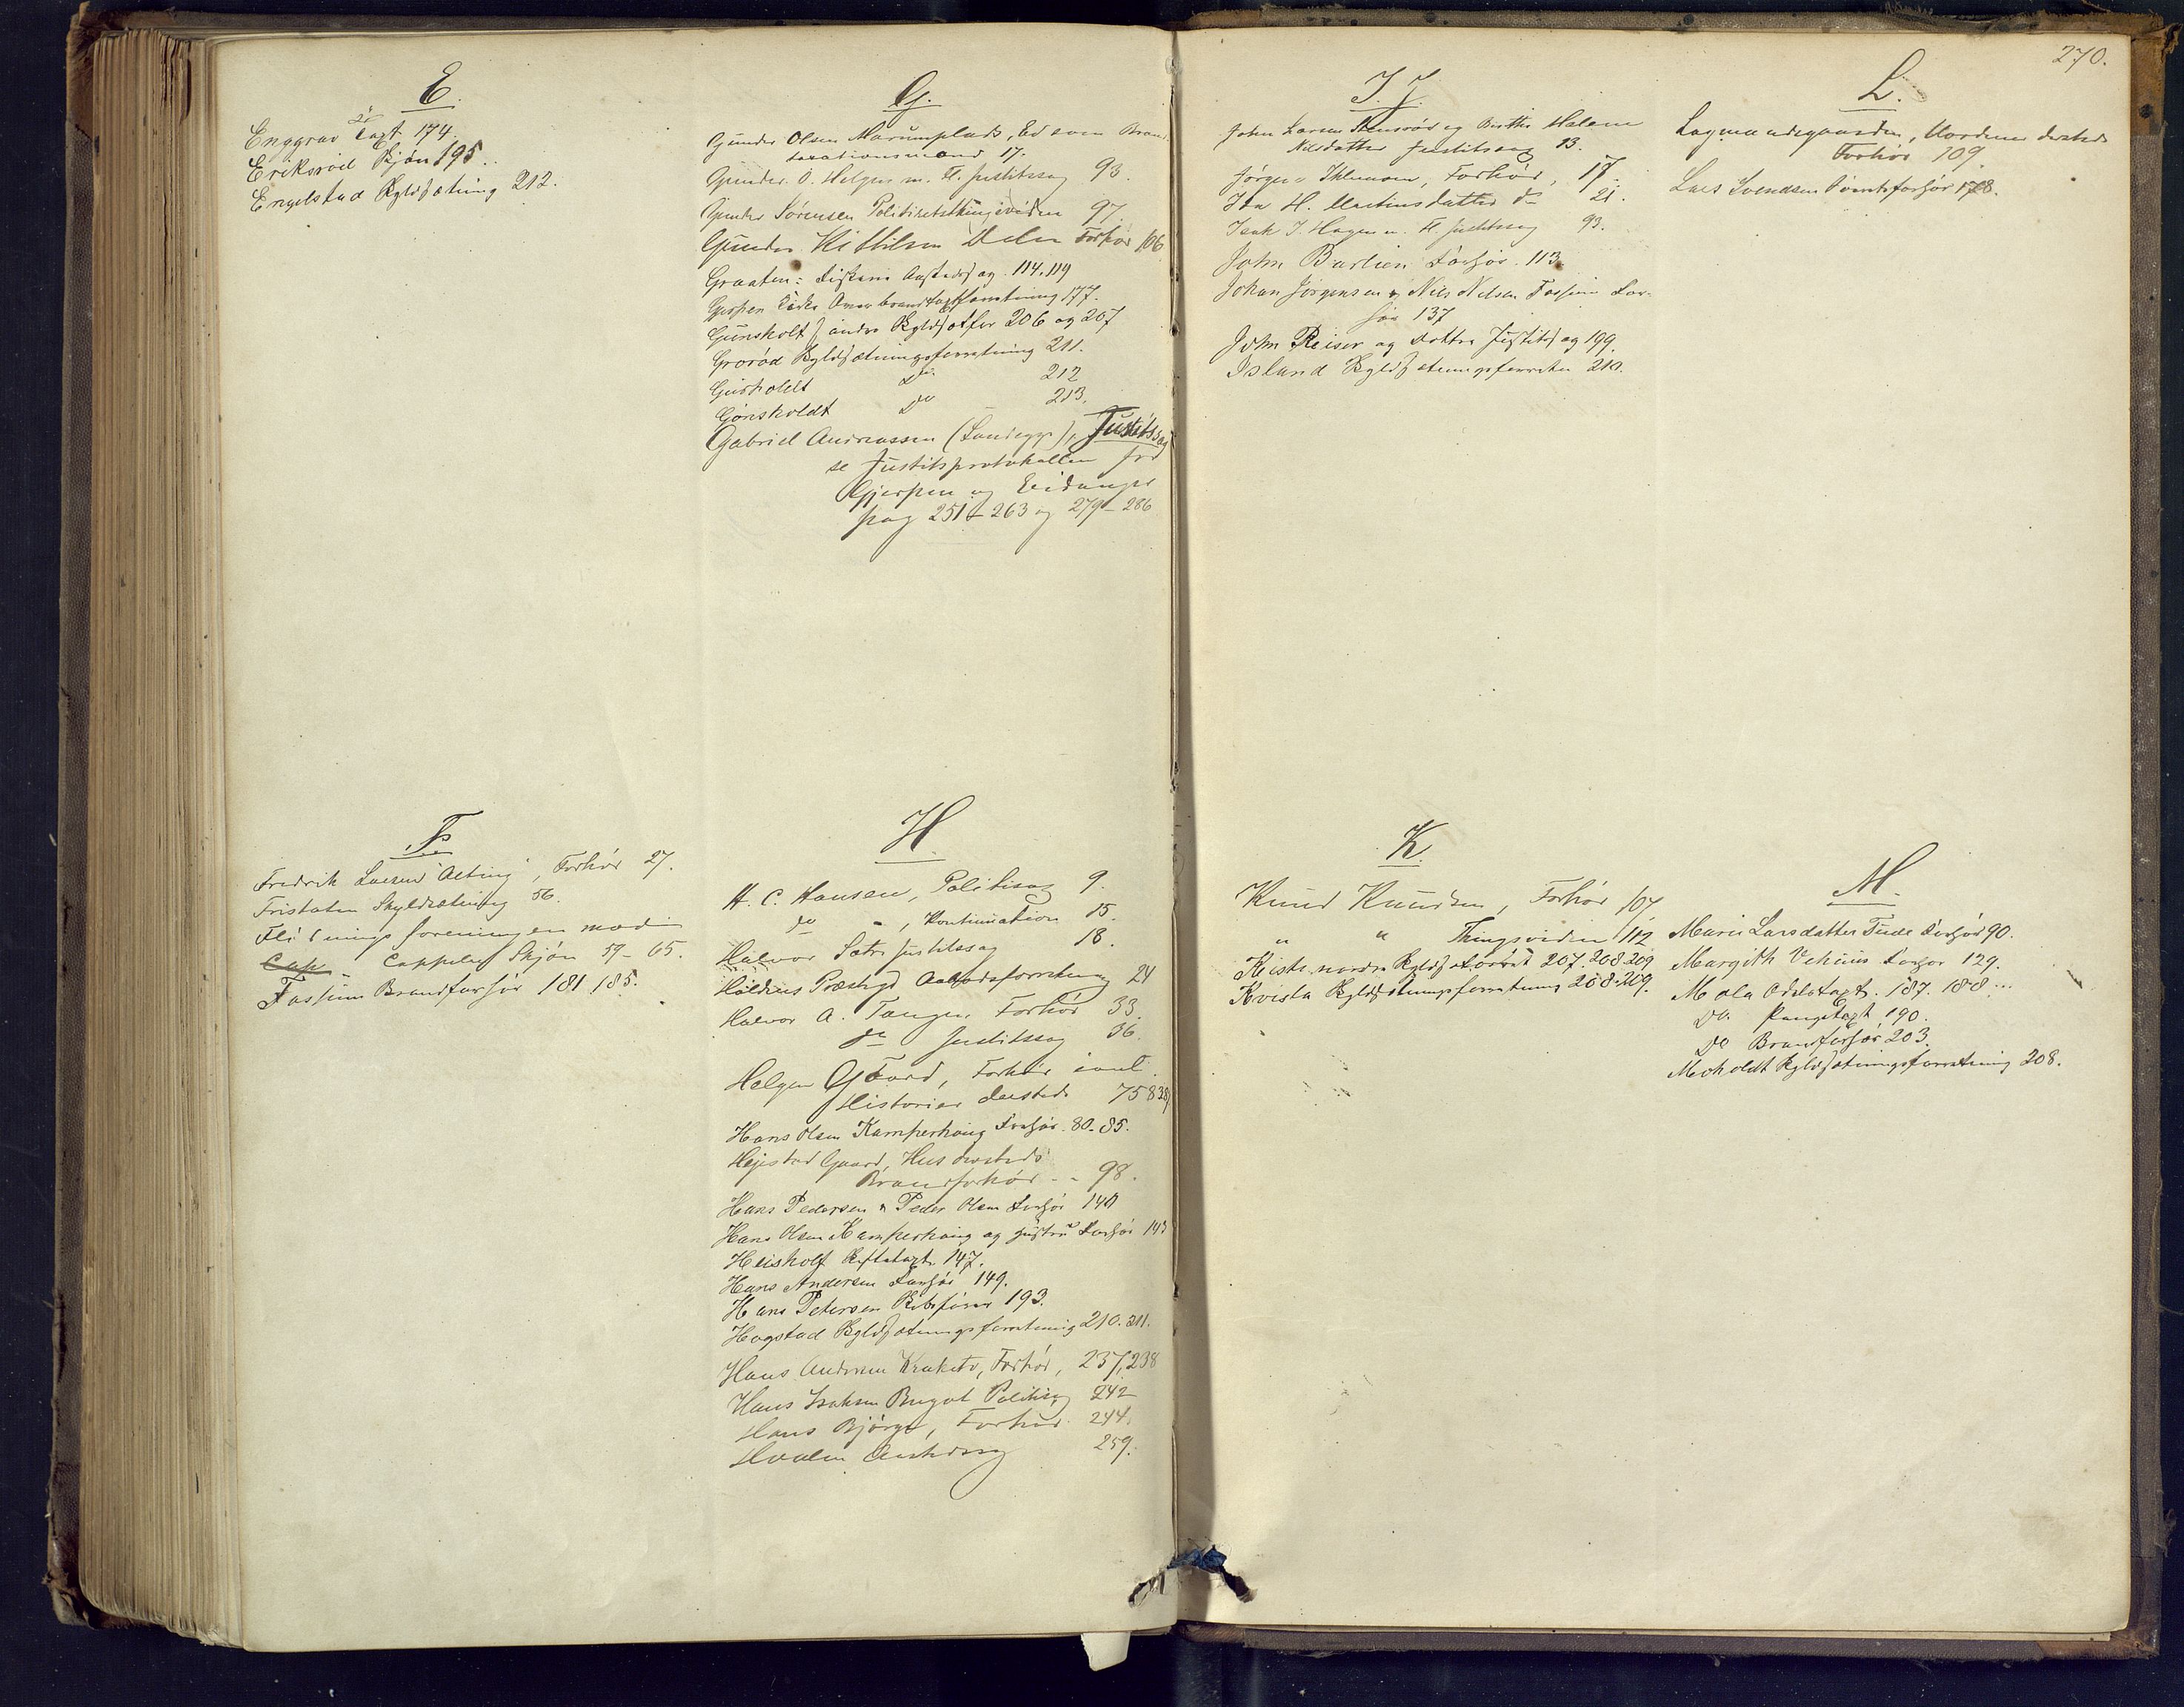 E.
Enggrav Taxt. 174.
Eriksröd Skjön 195.
Engelstad Skyldsætning 212.
F.
Fredrik Larsen Alting, Forhör 27.
Fristaten Skyldsætning 56.
Flödningsforeningen mod
Cap Cappelens Skjön 59-65.
Fossum Brandforhör 181 185.
G.
Gunder Olsen Marumplads, Ed som Brand
taxationsmand 17.
Gunder O. Helgen m. Fl. Justitssag 93.
Gunder Sörensen Politiretsthingsvidne 97.
Gunder Kittilsen Forhör 106
Graaten: Aastedssag. 114, 119
Gjerpen 177.
Gunsholt søndre Skyldsætfor 206 og 207
Grorød Skyldsætningsforretning 211.
Gusholdt Do 212
Gönsholdt Do 213.
Gabriel Andreassen Justitssag
se Justitsprotokollen for
Gjerpen og Eidanger
pag 251-263 og 279-286
H.
H. C. Hansen, Politisag 9.
do " , Kontinuation 15.
Halvor Sætre Justitssag 18.
Præstgd Aabodsforretning 24
Halvor A. Tangen Forhör 33.
do Justitssag 36.
Helgen Gaard, Forhör
Historier dersteds 75 83
Hans Olsen Kamperhaug Forhör. 80-85.
Hejestad Gaard, Hus dersteds
Brandforhör - - 98.
Hans Pedersen & Peder Olsen Forhör 140
Hans Olsen Kamperhaug og Hustru Forhör 143
Heisholt 147.
Hans Andersen Forhör 149.
Hans Petersen 193.
Hogstad Skyldsætningsforretning 210. 211.
Hans Andersen Forhör, 237, 238
Hans Isaksen Politisag 242
Hans Bjørge, Forhör 244.
Hvalen Aastedssag 259.
270.
I. J.
John Larsen Stensröd og Birthe Malene
Nilsdatter Justitssag 13.
Jörgen Forhör, 17.
Ida H. Martinsdatter do 21.
Isak J. Hagen m. Fl Justitssag 93.
John Bastien Forhör. 113
Johan Jörgensen & Nils Nilsen Fossum For-
hör 137
John Reiser og Datter Justitssag 199.
Island Skyldsætningsforretn 210.
K.
Knud Knudsen, Forhör 107
" " Thingsvidne 112
Kiste nordre 207. 208. 209
Kvista Skyldsætningsforretning 208. 209.
L.
Lagmandsgaarden, Mordene dersteds
Forhör 109.
Lars Svendsen Forhör 178.
M.
Maren Larsdatter Forhör 90.
Margith Forhör 129.
Mæla Odelstaxt. 187. 188...
Do Pangtaxt 190.
Do Brandforhör 203.
Meholdt Skyldsætningsforretning 208.